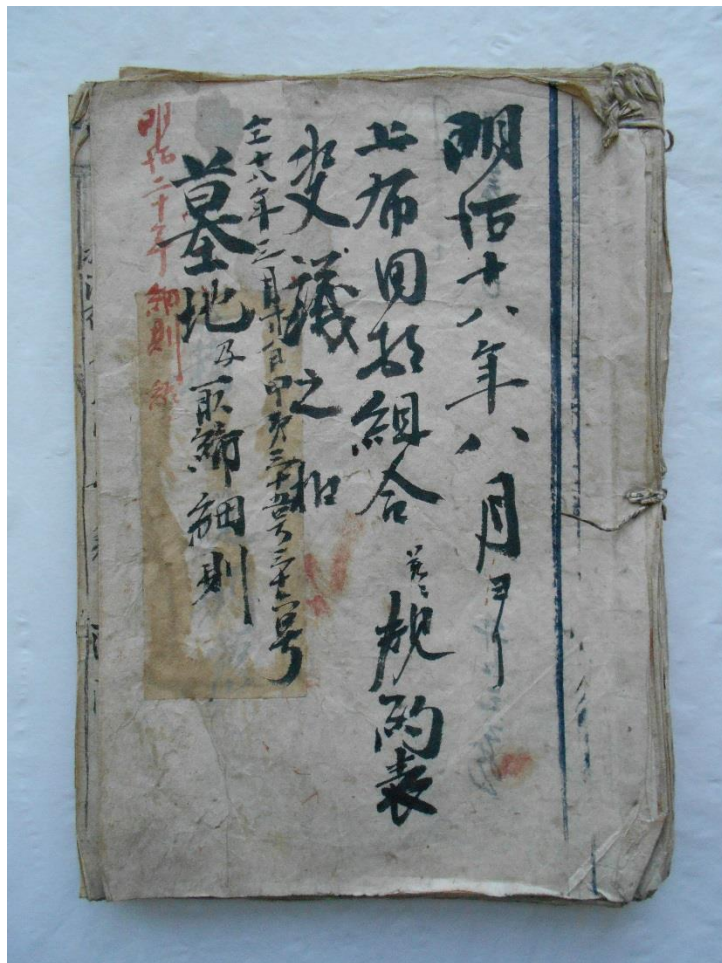 明治十八年八月ヨリ
上布田村組合規約表
議之扣
十八年三月甲第三十五号三十六号
墓地及取締細則
明治二十年細則